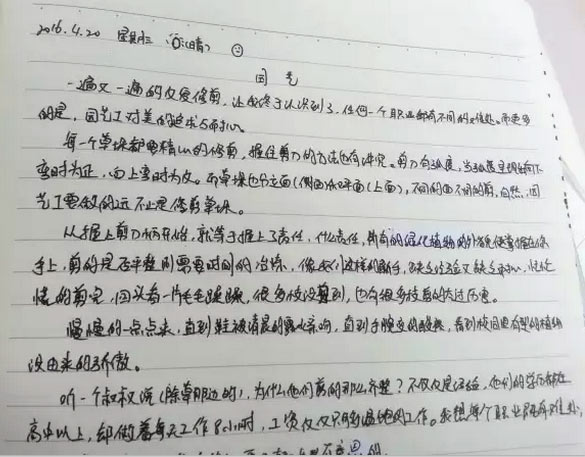 2016.4.20 星期三 (晴)
园艺
一遍又一遍的反复修剪，让我终于认识到了，任何一个职业都有不同的难处。而更多
的是，园艺工对美的追求与耐心。
每一个草块都要精心的修剪，握住剪刀的方法也有讲究。剪刀有弧度，当弧度呈现向下
弯时为正，向上弯时为反。而草块也分立面(侧面)和平面(上面)，不同的面不同的剪，自然，园
艺工要做的远不止是修剪草块。
从握上剪刀柄开始，就等于握上了责任，什么责任，所有的绿化植物的外貌便掌握在你
手上，剪的是否平整则需要时间的冶炼，像我们这样的新手，既缺乏经验又缺乏耐心，
的剪完，回头看一片毛毛躁躁，很多枝没剪到，也有很多枝剪的太过厉害。
慢慢的一点点来，直到鞋被清晨的露水弄响，直到手腕变的酸疼，看到校园里有型的植物
没由来的骄傲。
听一个叔叔说(除草那边的)，为什么他们剪的那么齐整？不仅仅是经验，他们的学历都在
高中以上，却做着每天工作8小时，工资仅仅只有的工作。我想每个职业都有难处，